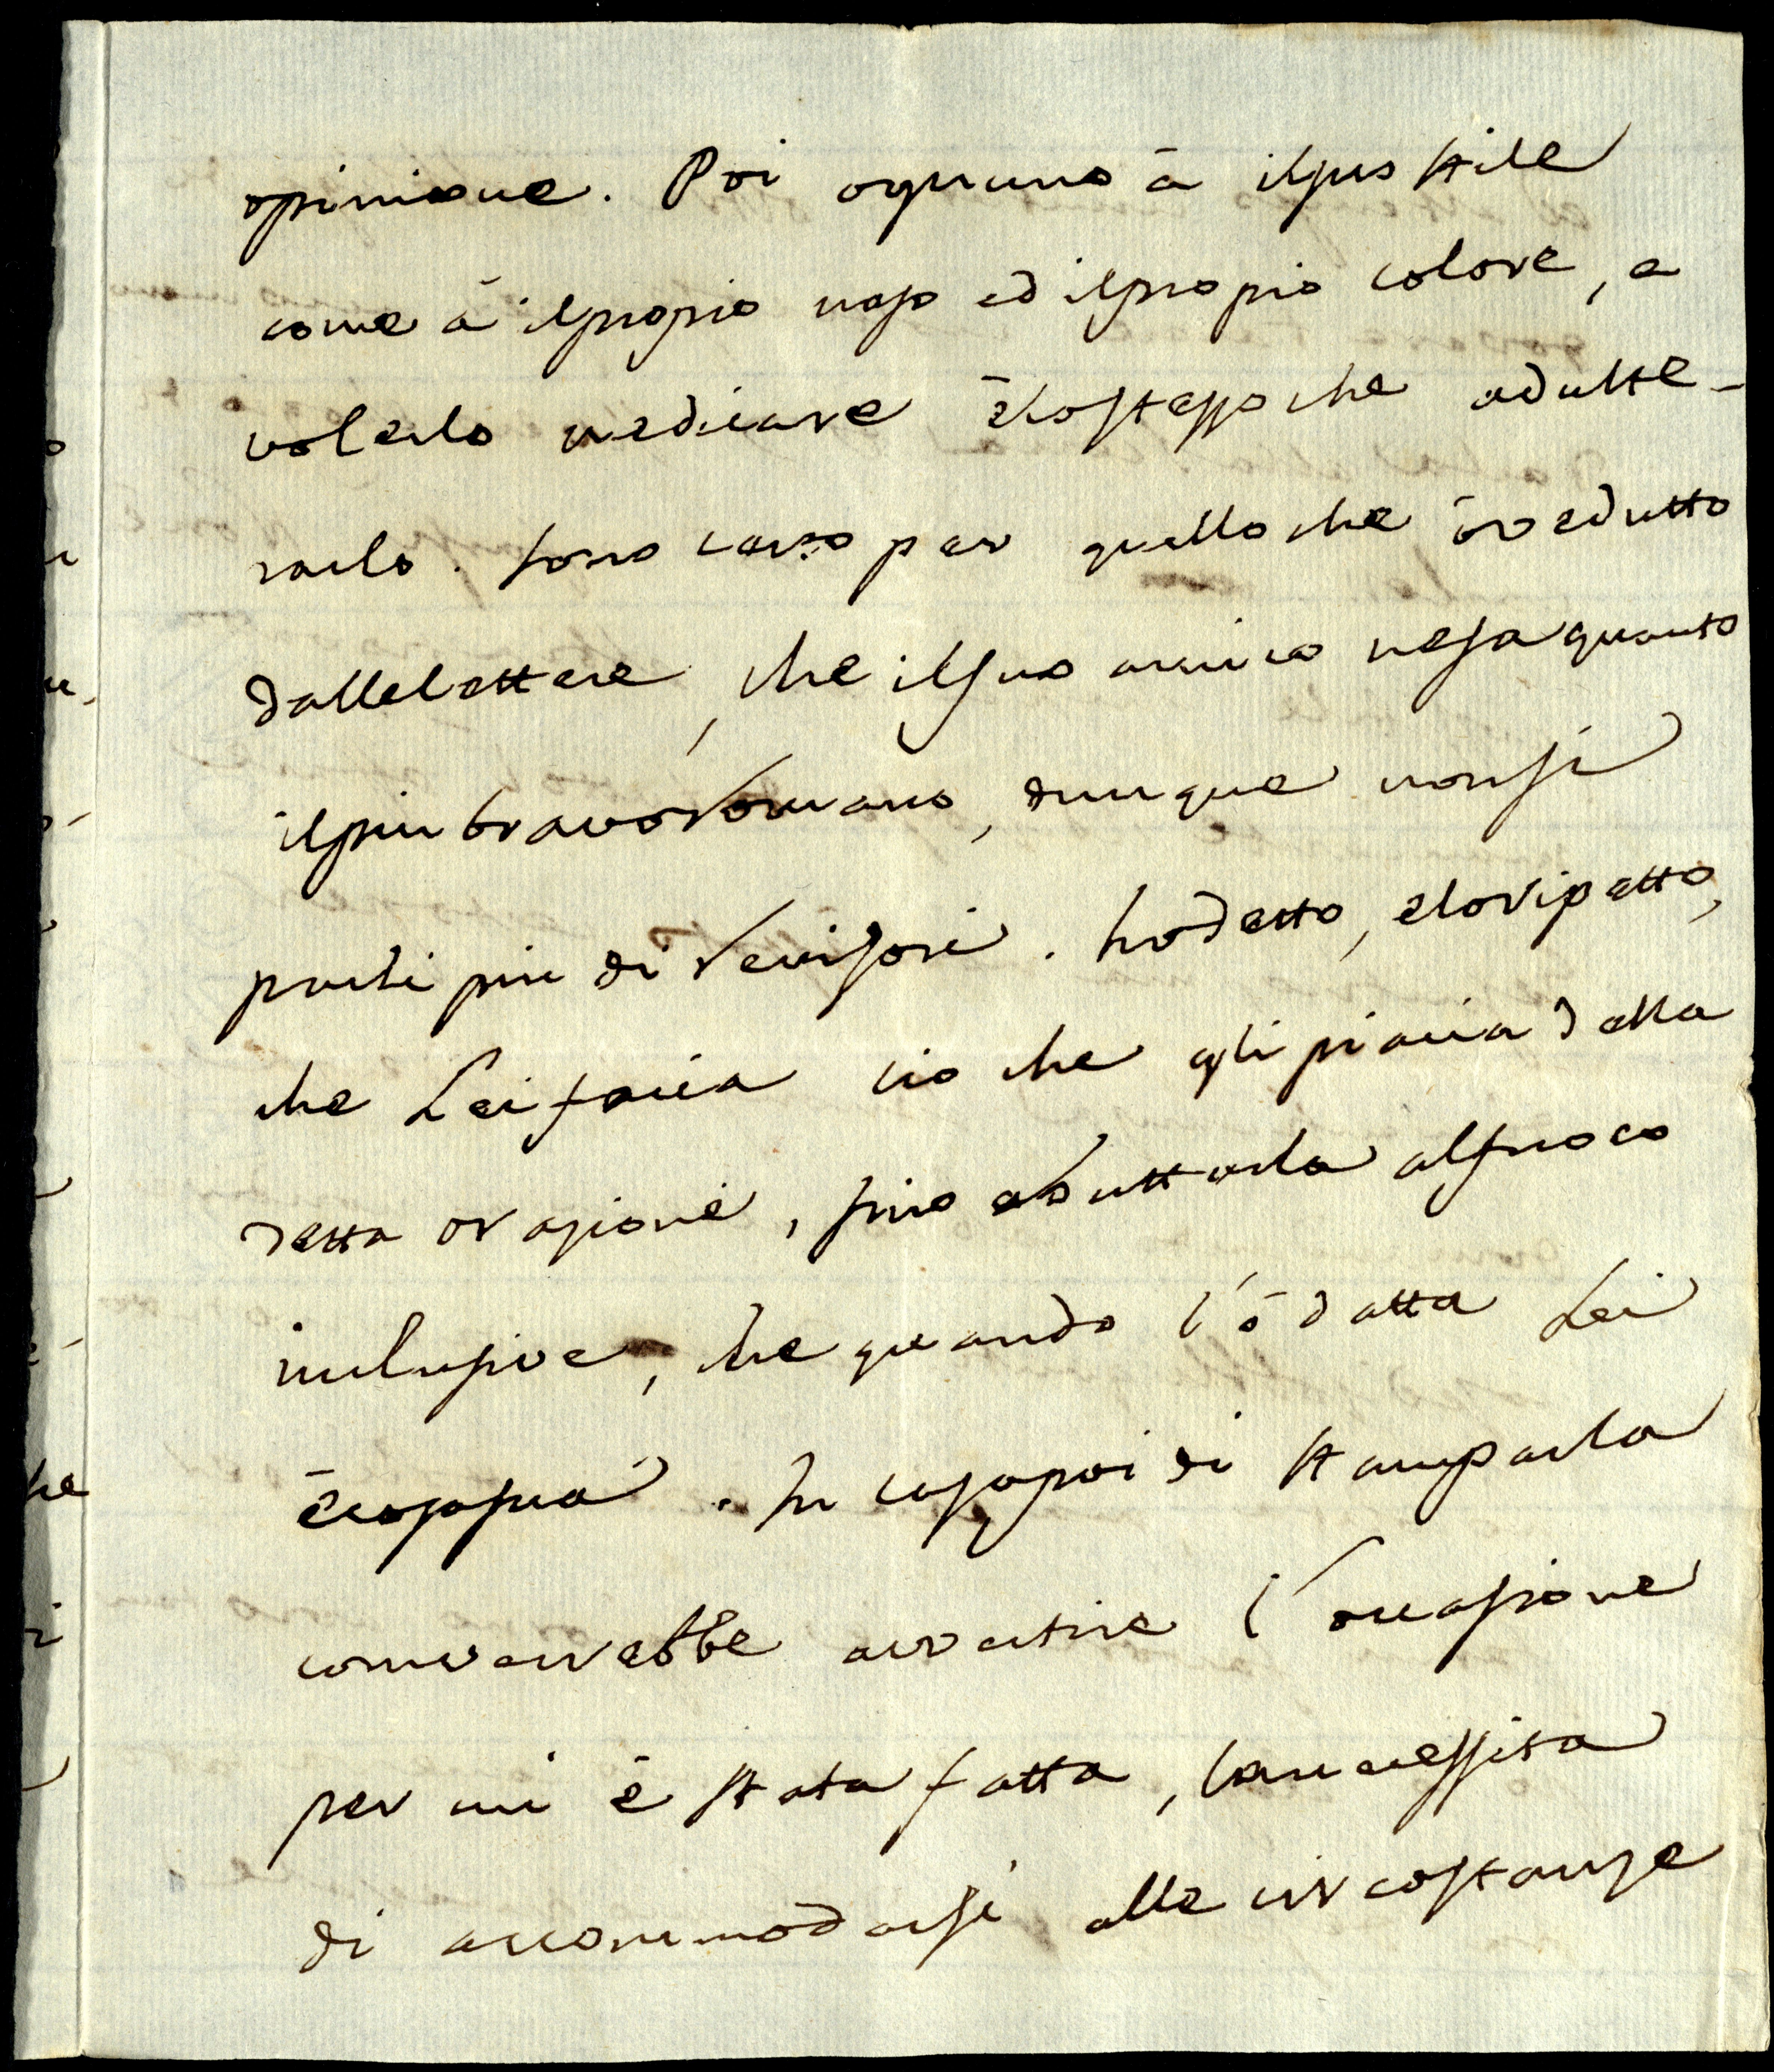 opinione. Poi ognuno à il suo stile
come à il proprio naso ed il proprio colore, e
volerlo medicare è lo stesso che adulte-
rarlo. Sono certo per quello che ò vedutto
dalle lettere, che il suo amico ne sa quanto
il piu bravo Romano, dunque non si
parli piu di revisori. hò detto, e lo ripetto,
che Lei facia cio che gli piacia della
detta orazione, fino a buttarla al fuoco
inclusive, che quando l'ò datta Lei
è cosa sua. In caso poi di stamparla
converrebbe avertire l'occasione
per cui è stata fatta, la necessita
di accommodarsi alle circostanze